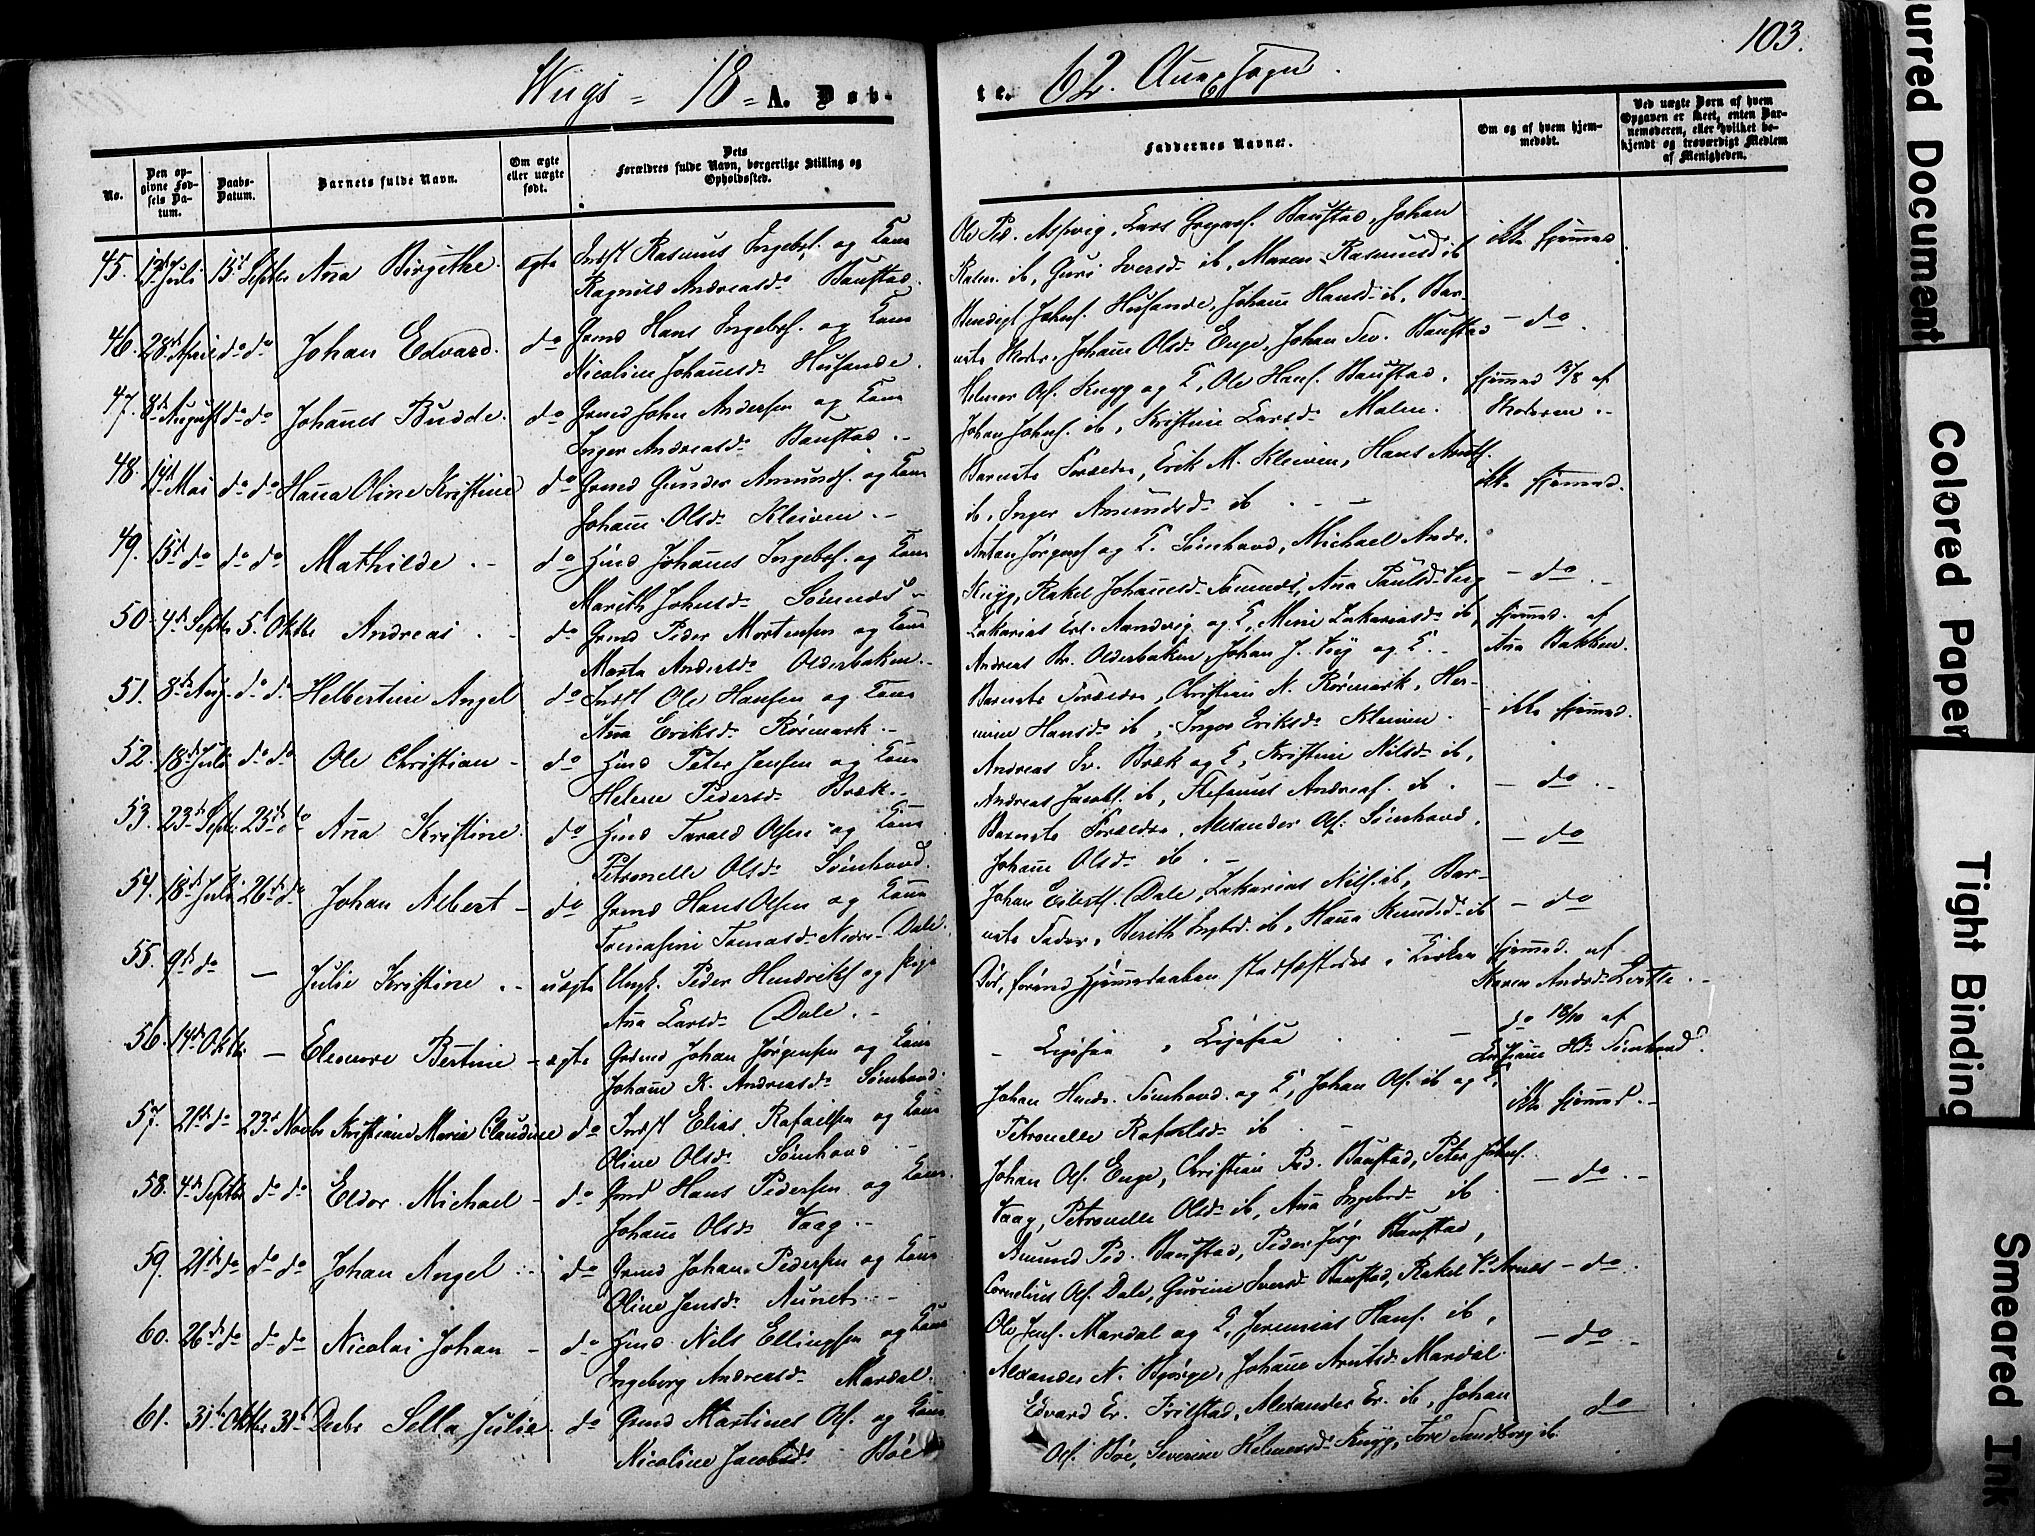 103.
Wiigs - 18 - A. Døb-
te. 62. Aunesogn.
No.
Den op-
givne Fød-
sels Da-
tum.
Daabs-
Datum.
Barnets fulde Navn.
Om ægte
eller uægte
født.
Dets
Forældres fulde Navn, borgerlige Stilling og
Opholdssted.
Faddernes Navne.
Om og af hvem hjem-
medøbt.
Ved uægte Børn af hvem
Opgaven er skeet, enten Bar-
nemoderen, eller hvilket be-
kjendt og troværdigt Medlem
af Menigheden.
45. Juli 15d Septbr Ana Birgithe. ægte Indst Rasmus Ingebs. og Kone
Ragnild Andreasdr Baustad.
Ole Ped. Aspvig, Lars Baustad, Johan
ib, Guri Iversdr ib, Maren Rasmusd ib
ikke hjemmed.
46. 28d April do do Johan Edvard. do Grmd Hans Ingebs. og Kone
Nicoline Johansdr Husande.
Bendigt Johns. Husande, Johane Hansdr ib, Bar-
nets Moder, Johane Olsdr Enge, Johan Baustad
- do -
47. 8d August do do Johanes Budde. do Grmd John Andersen og Kone
Inger Andreasdr Baustad.
Helmer Ols. Knyg og K, Ole Hans. Baustad.
Johan Johns. ib, Kristine Larsdr Malen.
hjemmed 13/8 af
Moderen.
48. 14d Mai do do Hana Oline Kristine do Grmd Gunder Amunds. og Kone
Johane Olsdr Kleiven.
Barnets Forældre, Erik M. Kleiven, Hans
ib, Inger Amundsdr ib
ikke hjemmed.
49. 15d do do do Mathilde. do Johanes Ingebs. og Kone
Marith Johnsdr
Antan Jørgens og K. Sørnhavd, Michael Andr.
Knyg, Rakel Johansdr Ana Paulsdr
- do -
50. 4d Septbr 5t Oktbr Andreas. do Grmd Peder Mortensen og Kone
Marta Andersdr Olderbaken.
Zakarias Aandvig og K, Mine Zakariasdr ib,
Andreas Olderbaken, Johan J. og K.
hjemmed. af
Ana Bakken.
51. 8d Aug. do do Helbertine Angel do Indst Ole Hansen og Kone
Ana Eriksdr Rørmark.
Barnets Forældre, Christian N. Rørmark, Her-
mine Hansdr ib, Inger Eriksdr Kleiven.
ikke hjemmed.
52. 18d Juli do do Ole Christian - do Peter Jensen og Kone
Helene Pedersdr Bræk.
Andreas Bræk og K, Kristine Nilsdr ib,
Andreas Jacobs. ib, Stefanus Andreas. ib.
- do -
53. 23d Septr. 25d do Ana Kristine. do Tarald Olsen og Kone
Petronelle Olsdr Sørnhavd.
Barnets Forældre, Alexander Ols. Sørnhavd.
Johane Olsdr ib.
- do
54. 18d Juli 26d do Johan Albert - do Grmd Hans Olsen og Kone
Tomasine Tomasdr Nedre-Dale.
Johan Dale, Zakarias Nils. ib, Bar-
nets Fader, Berith ib, Hana Knudsd ib
- do
55. 9d do - Julie Kristine. - uægte Ungk. Peder Hendriks og Pige
Ana Larsdr Dale.
Død, førend Hjemmedaaben stadfæstedes i Kirken
hjemmed. af
Karen Andrsdr
56. 14d Oktbr - Eleonore Bertine - ægte Grmd Johan Jørgensen og Kone
Johane K. Andreasdr Sørnhavd.
- Ligesaa, Ligesaa -
do 18/10 af
Sørnhavd.
57. 21d do 23d Novbr Kristiane Marie Claudine do Indst Elias Rafaelsen og Kone
Oline Olsdr Sørnhavd
Johan Sørnhavd. og K, Johan Ols. ib og K,
Petronelle Rafaelsdr ib
ikke hjemmed.
58. 4d Septbr do do Eldor Michael - do Grmd Hans Pedersen og Kone
Johane Olsdr Vaag.
Johan Ols. Enge, Christian Ped. Baustad, Peter Johns.
Vaag, Petronelle Olsdr ib, Ana Ingebrdr ib
- do -
59. 21d do do do Johan Angel. do Grmd Johan Pedersen og Kone
Oline Jensdr Aunet.
Amund Ped. Baustad, Peder Jørg. Baustad,
Cornelius Ols. Dale, Gurine Iversdr Baustad, Rakel
- do -
60. 26d do do do Nicolai Johan - do Nils Ellingsen og Kone
Ingeborg Andreasdr Mardal.
Ole Jens. Mardal og K, Jeremias Hans. ib,
Alexander N. Bjørge, Johane Arntsdr Mardal.
- do -
61. 31t Oktbr 31t Decbr Sella Julie. do Grmd Martines Ols. og Kone
Nicoline Jacobsdr Böe
Edvard Er. Alexander Er. ib, Johan
Ols. Böe, Severine Helmersdr Knyg, Sandberg ib
do
urred Document
Colored Paper
Tight Binding
Smeared Ink